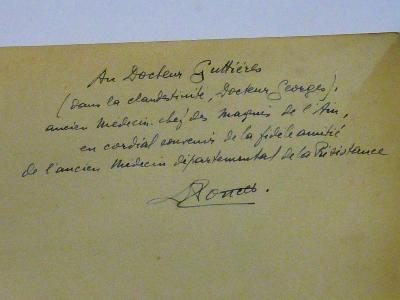 Au Docteur Guttières
(dans la clandestinité, Docteur Georges),
ancien Medecin-chef des maquis de l'Ain,
en cordial souvenir de la fidèle amitié
de l'ancien Medecin départemental de la Résistance